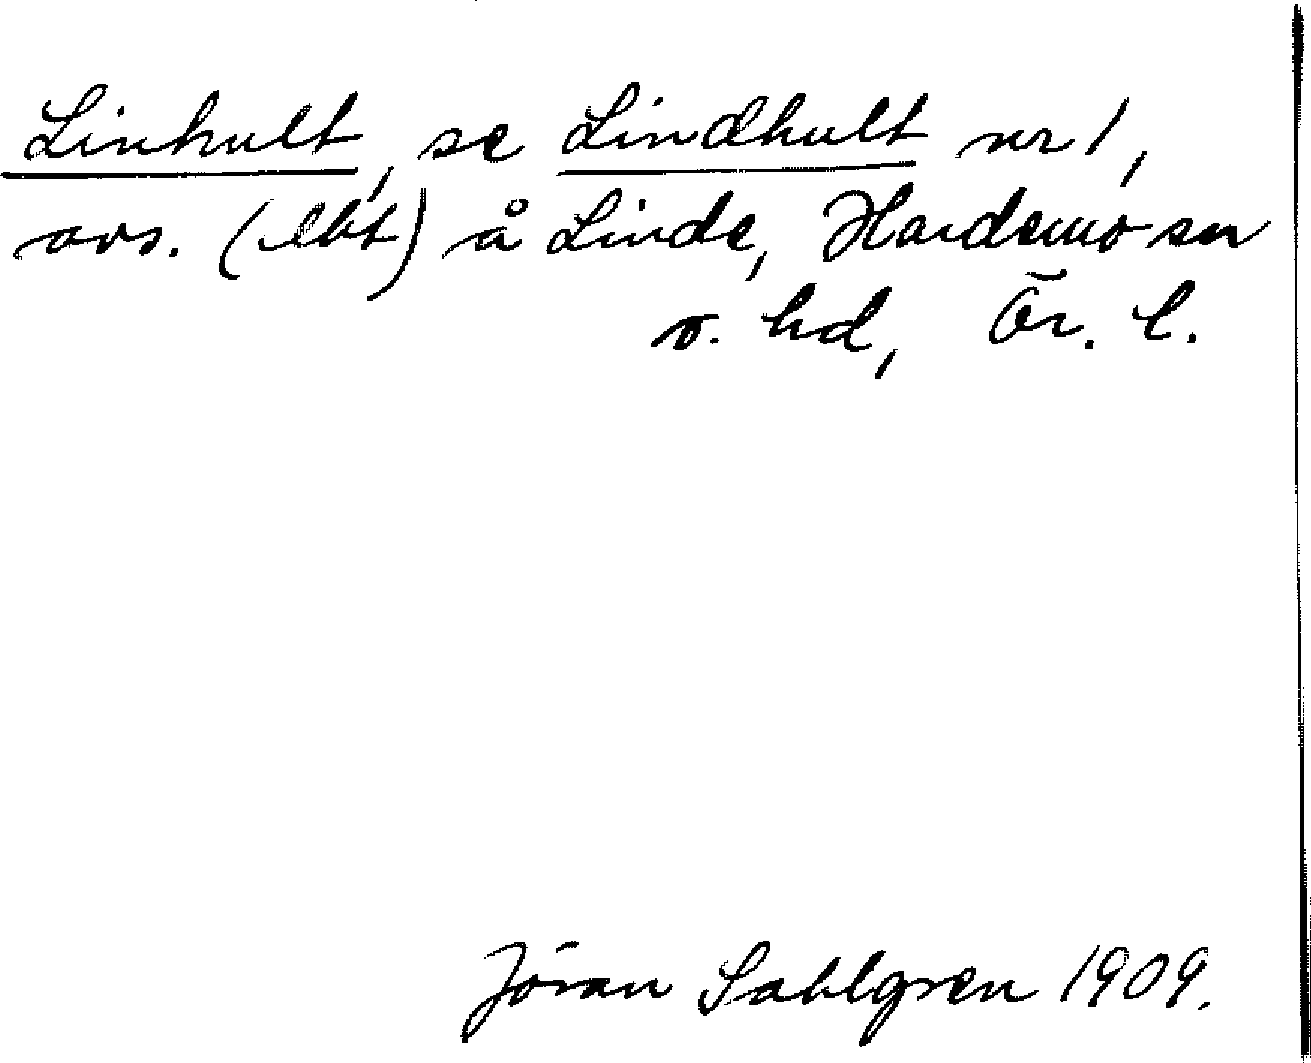 Linhult, se Lindhult nr 1,
avs. (lht) å Linde, Hardemo sn
o. hd, Ör. l.
Jöran Sahlgren 1909.